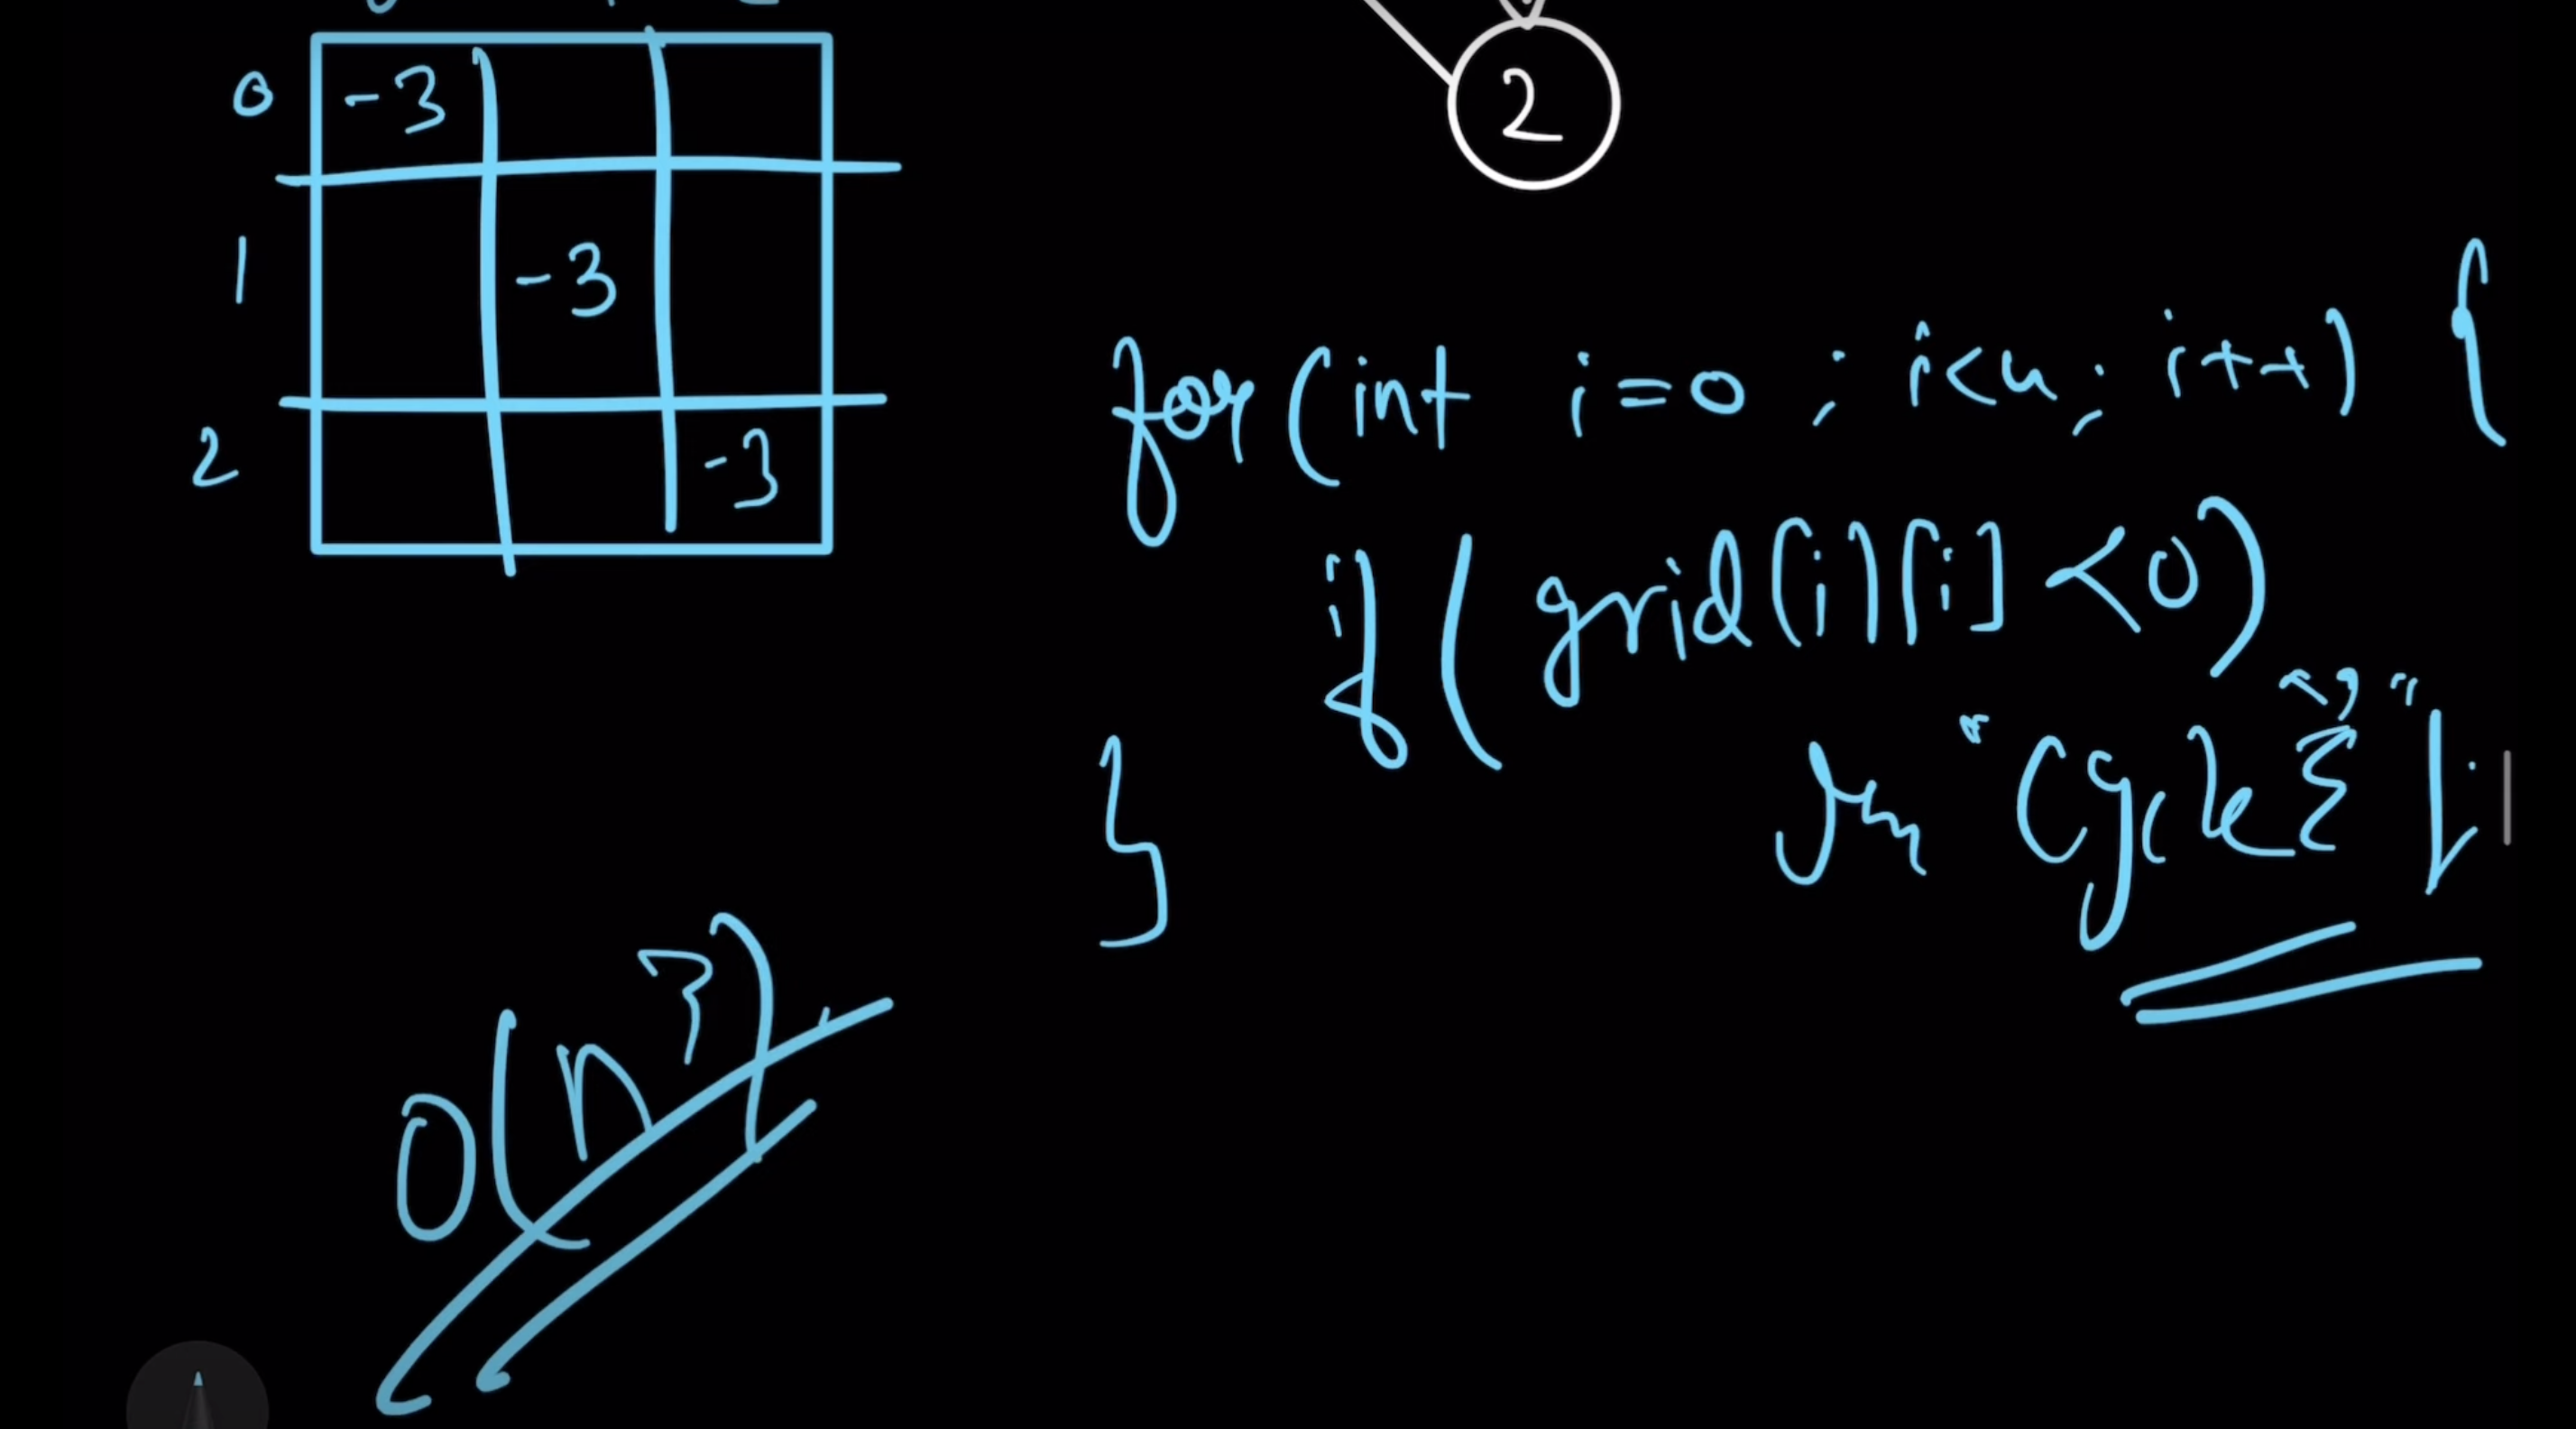 0 -3
1 -3
2 -3
2
for (int i=0 ; i<n ; i++) {
if (grid[i][i] <0)
}
O(n³)